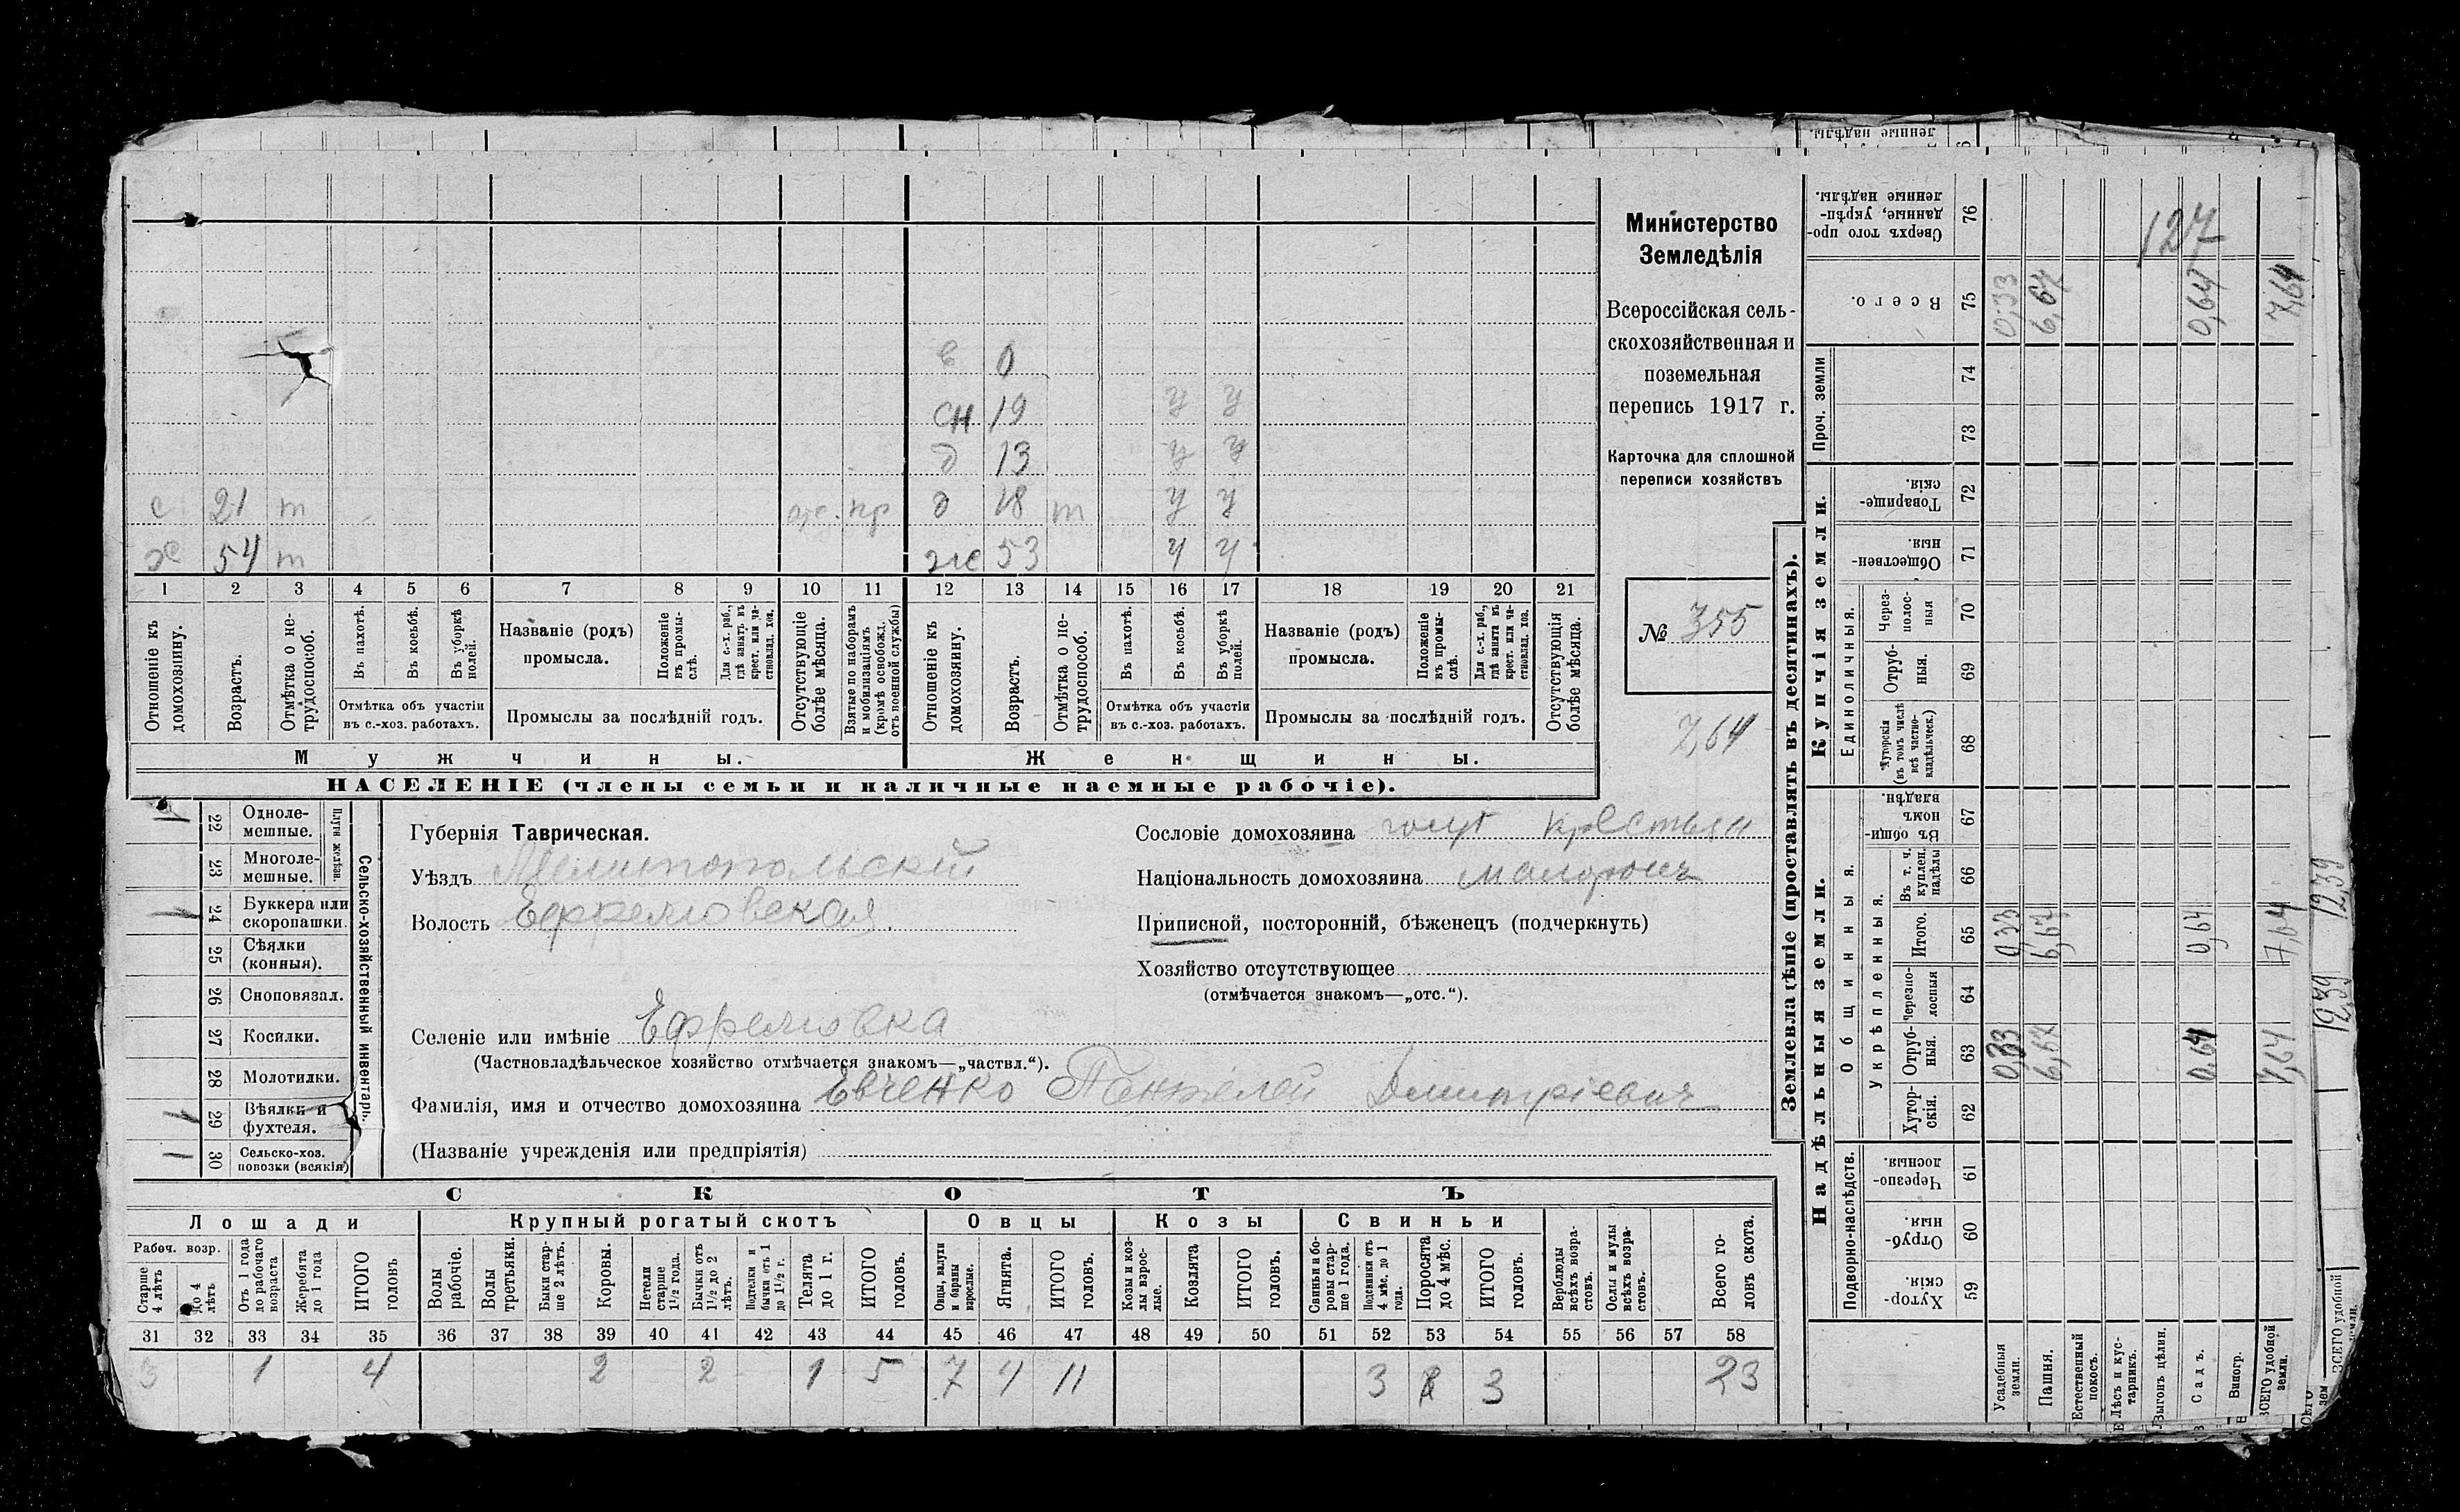 ленные надѣлы.
Министерство
Земледѣлія
Всероссійская сель-
скохозяйственная и
поземельная
перепись 1917 г.
Карточка для сплошной
переписи хозяйствъ
№ 355
7,64
0
сн 19 у у
д 13 у у
с 21 т отс. пр д 18 т у у
х 54 т ж 53 у у
1 2 3 4 5 6 7 8 9 10 11 12 13 14 15 16 17 18 19 20 21
Отношеніе къ домохозяину.
Возрастъ.
Отмѣтка о не-трудоспособ.
Въ пахотѣ.
Въ косьбѣ.
Въ уборкѣ полей.
Отмѣтка объ участіи
въ с.-хоз. работахъ.
Названіе (родъ)
промысла.
Положеніе въ промы-слѣ.
Для с.-х. раб., гдѣ занятъ въ крест. или ча-стновлад. хоз.
Промыслы за послѣдній годъ.
Отсутствующіе болѣе мѣсяца.
Взятые по наборамъ и мобилизаціямъ (кромѣ освобожд. отъ военной службы)
Отношеніе къ домохозяину.
Возрастъ.
Отмѣтка о не-трудоспособ.
Въ пахотѣ.
Въ косьбѣ.
Въ уборкѣ полей.
Отмѣтка объ участіи
въ с.-хоз. работахъ.
Названіе (родъ)
промысла.
Положеніе въ промы-слѣ.
Для с.-х. раб., гдѣ занята въ крест. или ча-стновлад. хоз.
Промыслы за послѣдній годъ.
Отсутствующія болѣе мѣсяца.
Мужчины. Женщины.
НАСЕЛЕНІЕ (члены семьи и наличные наемные рабочіе).
22 Однолемешные.
23 Многолемешные.
Плуги желѣзн.
24 Буккера или скоропашки.
25 Сѣялки (конныя).
26 Сноповязал.
27 Косилки.
28 Молотилки.
29 Вѣялки и фухтеля.
30 Сельско-хоз. повозки (всякія)
Сельско-хозяйственный инвентарь.
Губернія Таврическая.
Уѣздъ Мелитопольскій
Волость Ефремовская
Селеніе или имѣніе Ефремовка
(Частновладѣльческое хозяйство отмѣчается знакомъ—„частвл.“).
Фамилія, имя и отчество домохозяина Евченко Пантелей Дмитріевич
(Названіе учрежденія или предпріятія)
Сословіе домохозяина крестьян
Національность домохозяина малоросъ
Приписной, посторонній, бѣженецъ (подчеркнуть)
Хозяйство отсутствующее
(отмѣчается знакомъ—„отс.“).
СКОТЪ
Лошади Крупный рогатый скотъ Овцы Козы Свиньи
Рабоч. возр.
Старше 4 лѣтъ
до 4 лѣтъ
Отъ 1 года до рабочаго возраста
Жеребята до 1 года
ИТОГО головъ
Волы рабочіе.
Волы третьяки.
Быки стар-ше 2 лѣтъ.
Коровы.
Нетели старше 1½ года.
Бычки отъ 1½ до 2 лѣтъ.
Подтелки и бычки отъ 1 до 1½ г.
Телята до 1 г.
ИТОГО головъ.
Овцы, валухи и бараны взрослые.
Ягнята.
ИТОГО головъ.
Козы и коз-лы взрос-лые.
Козлята
ИТОГО головъ.
Свиньи и бо-ровы стар-ше 1 года.
Подсвинки отъ 4 мѣс. до 1 года.
Поросята до 4 мѣс.
ИТОГО головъ.
Верблюды всѣхъ возра-стовъ.
Ослы и мулы всѣхъ возра-стовъ.
Всего го-ловъ скота.
31 32 33 34 35 36 37 38 39 40 41 42 43 44 45 46 47 48 49 50 51 52 53 54 55 56 57 58
3 1 4 2 2 1 5 7 4 11 3 3 23
Землевладѣніе (проставлять въ десятинахъ).
Надѣльныя земли. Купчія земли.
Подворно-наслѣдств.
Общинныя.
Укрѣпленныя.
Единоличныя.
Проч. земли
Хутор-скія. 59
Отруб-ныя. 60
Черезпо-лосныя. 61
Хутор-скія. 62
Отруб-ныя. 63
Черезпо-лосныя 64
Итого. 65
Въ т. ч. куплен. надѣлы 66
Въ общин-номъ владѣн. 67
Хуторскія (въ томъ числѣ всѣ частно-владѣльческ.) 68
Отруб-ныя. 69
Через-полос-ныя 70
Обществен-ныя. 71
Товарище-скія. 72
73
74
Всего. 75
Сверхъ того про-данные, укрѣп-ленные надѣлы. 76
Усадебныя земли. 0,33 0,33 0,33
Пашня. 6,67 6,67 6,67
Естественный покосъ.
Лѣсъ и кус-тарникъ.
Выгонъ цѣлин.
Садъ. 0,64 0,64 0,64
Виногр.
ВСЕГО удобной земли. 7,64 7,64 7,64
127
12,39 12,39
ВСЕГО удобной земли.